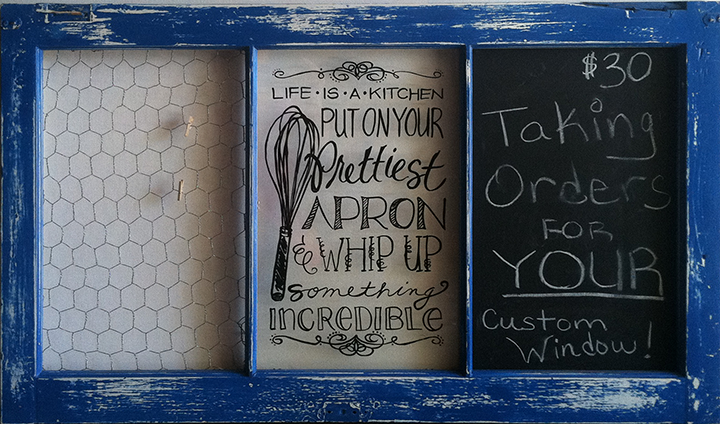 LIFE·IS·A·KITCHEN
PUT ON YOUR
Prettiest
APRON
& WHIP UP
something
INCREDIBLE
$30
Taking
Orders
FOR
YOUR
Custom
Window!